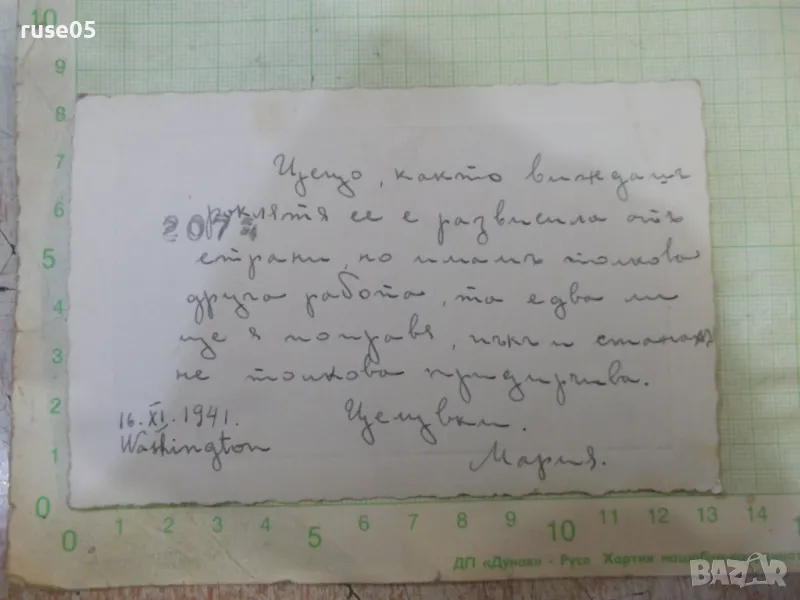 ruse05
Цецо, както виждашъ
роклята се е развисила отъ
страни, но имамъ толкова
друга работа, та едва ли
ще я поправя, пъкъ и станахъ
не толкова придирчива.
Целувки.
Мария.
16.XI.1941.
Washington
207
10
9
8
7
6
5
4
3
2
1
0
0 1 2 3 4 5 6 7 8 9 10 11 12 13 14
ДП «Дунав» - Русе Хартии
BAZAR